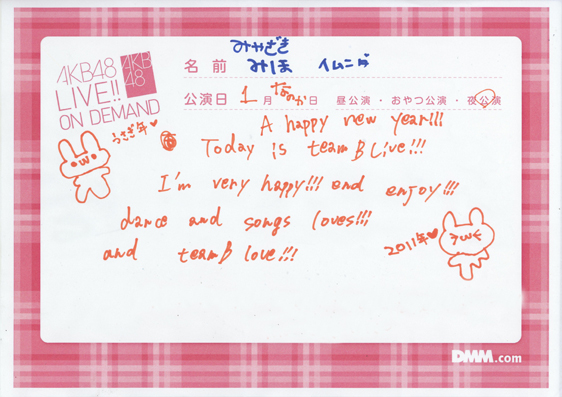 AKB48
LIVE!!
ON DEMAND
AKB
48
みやざき
名前 みほ イムニダ
公演日 1月なのか日 昼公演・おやつ公演・夜公演
A happy new year!!!
うさぎ年♥
Today is team B Live!!!
I'm very happy!!! and enjoy!!!
dance and songs loves!!!
2011年♥
and team B love!!!
DMM.com